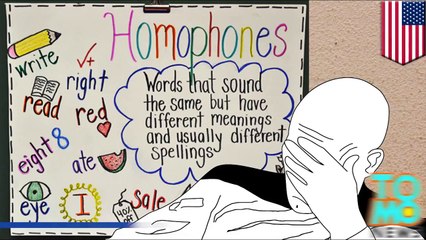 Homophones
Words that sound
the same but have
different meanings
and usually different
spellings
write
right
read
red
eight 8
ate
eye
I
40%
OFF
Sale
TO
MO
NEWS